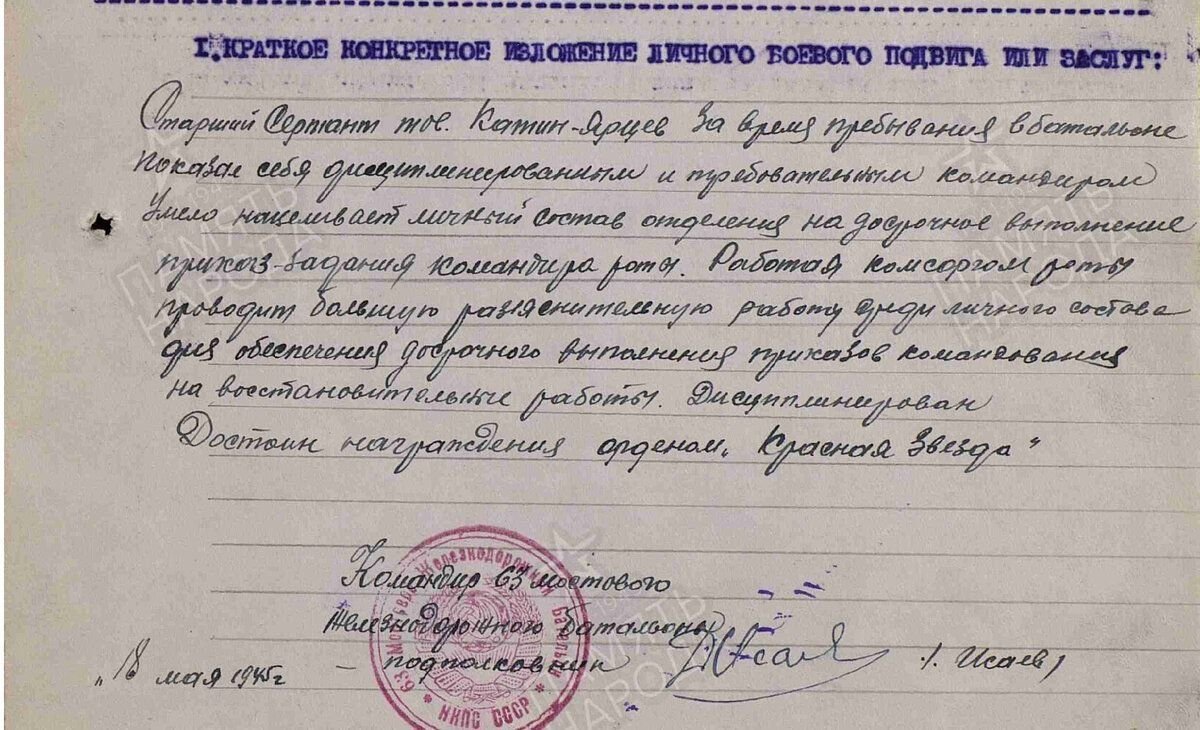 I. КРАТКОЕ КОНКРЕТНОЕ ИЗЛОЖЕНИЕ ЛИЧНОГО БОЕВОГО ПОДВИГА ИЛИ ЗАСЛУГ:
Старший Сержант тов. Катин-Ярцев за время пребывания в батальоне
показал себя дисциплинированным и требовательным командиром
Умело нацеливает личный состав отделения на досрочное выполнение
приказ-задания командира роты. Работая комсоргом роты
проводит большую разъяснительную работу среди личного состава
для обеспечения досрочного выполнения приказов командования
на восстановительные работы. Дисциплинирован
Достоин награждения орденом „Красная Звезда"
Командир 63 мостового
Железнодорожного батальона
– подполковник
/ Исаев /
„18 мая 1945г
63 Мостовой Железнодорожный Батальон
* НКПС СССР *
ПАМЯТЬ НАРОДА
ПАМЯТЬ НАРОДА
ПАМЯТЬ НАРОДА